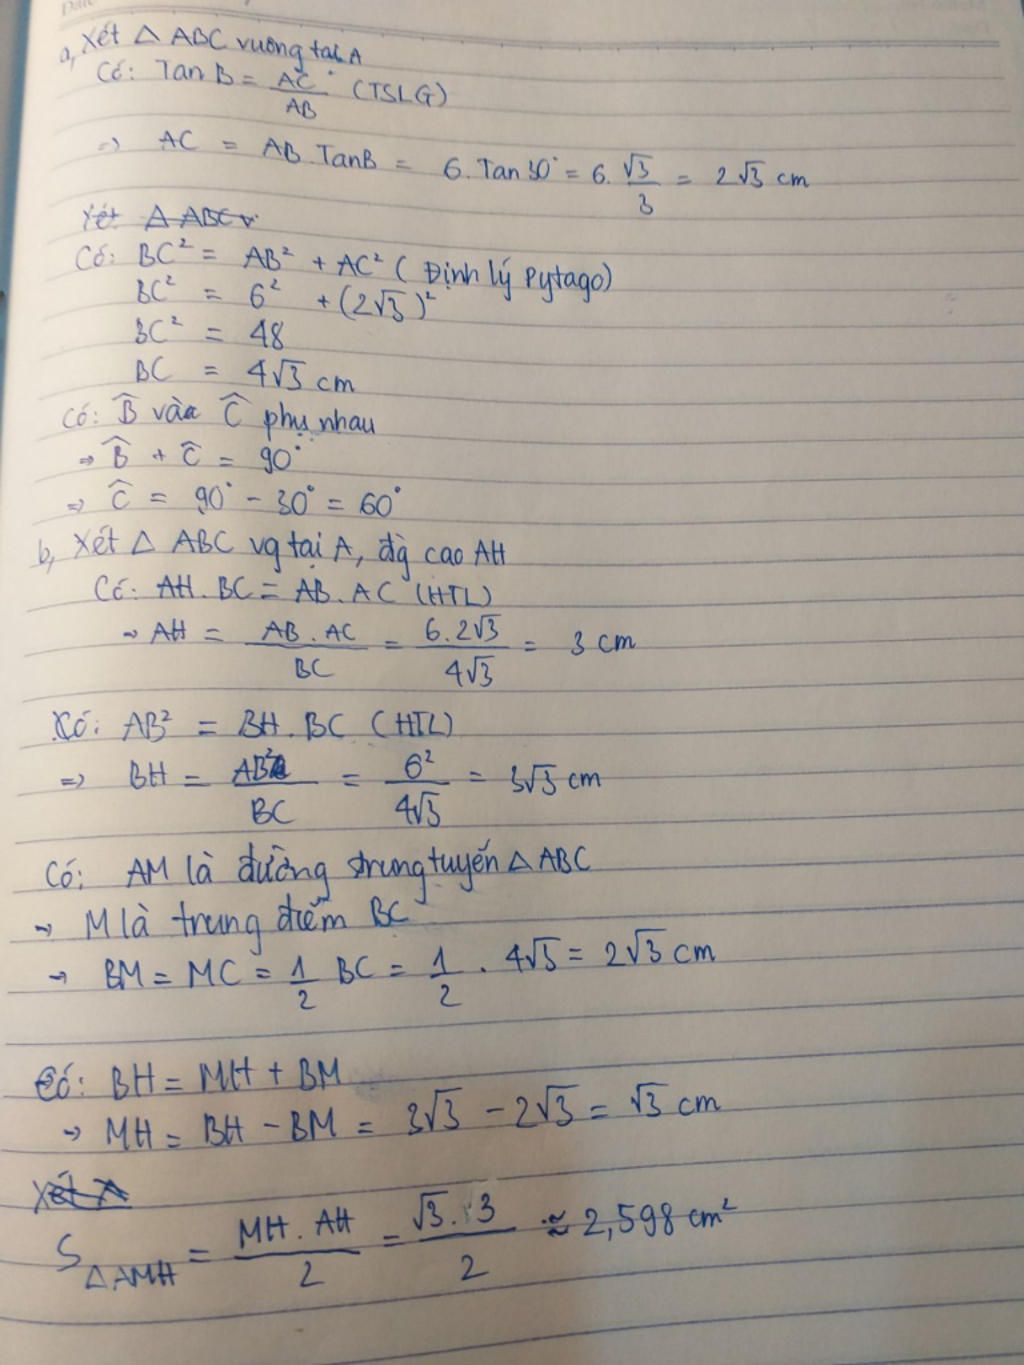 a, Xét △ ABC vuông tại A
Có: Tan B = AC/AB (TSLG)
=> AC = AB.TanB = 6.Tan30° = 6.√3/3 = 2√3 cm
Xét △ ABC v
Có: BC² = AB² + AC² (Định lý Pytago)
BC² = 6² + (2√3)²
BC² = 48
BC = 4√3 cm
Có: B̂ và Ĉ phụ nhau
=> B̂ + Ĉ = 90°
=> Ĉ = 90° - 30° = 60°
b, Xét △ ABC vg tại A, đg cao AH
Có: AH.BC = AB.AC (HTL)
→ AH = AB.AC/BC = 6.2√3/4√3 = 3 cm
Có: AB² = BH.BC (HTL)
=> BH = AB²/BC = 6²/4√3 = 3√3 cm
Có: AM là đường trung tuyến △ ABC
→ M là trung điểm BC
→ BM = MC = 1/2 BC = 1/2 . 4√3 = 2√3 cm
Có: BH = MH + BM
→ MH = BH - BM = 3√3 - 2√3 = √3 cm
Xét △
S△AMH = MH.AH/2 = √3.3/2 ≈ 2,598 cm²